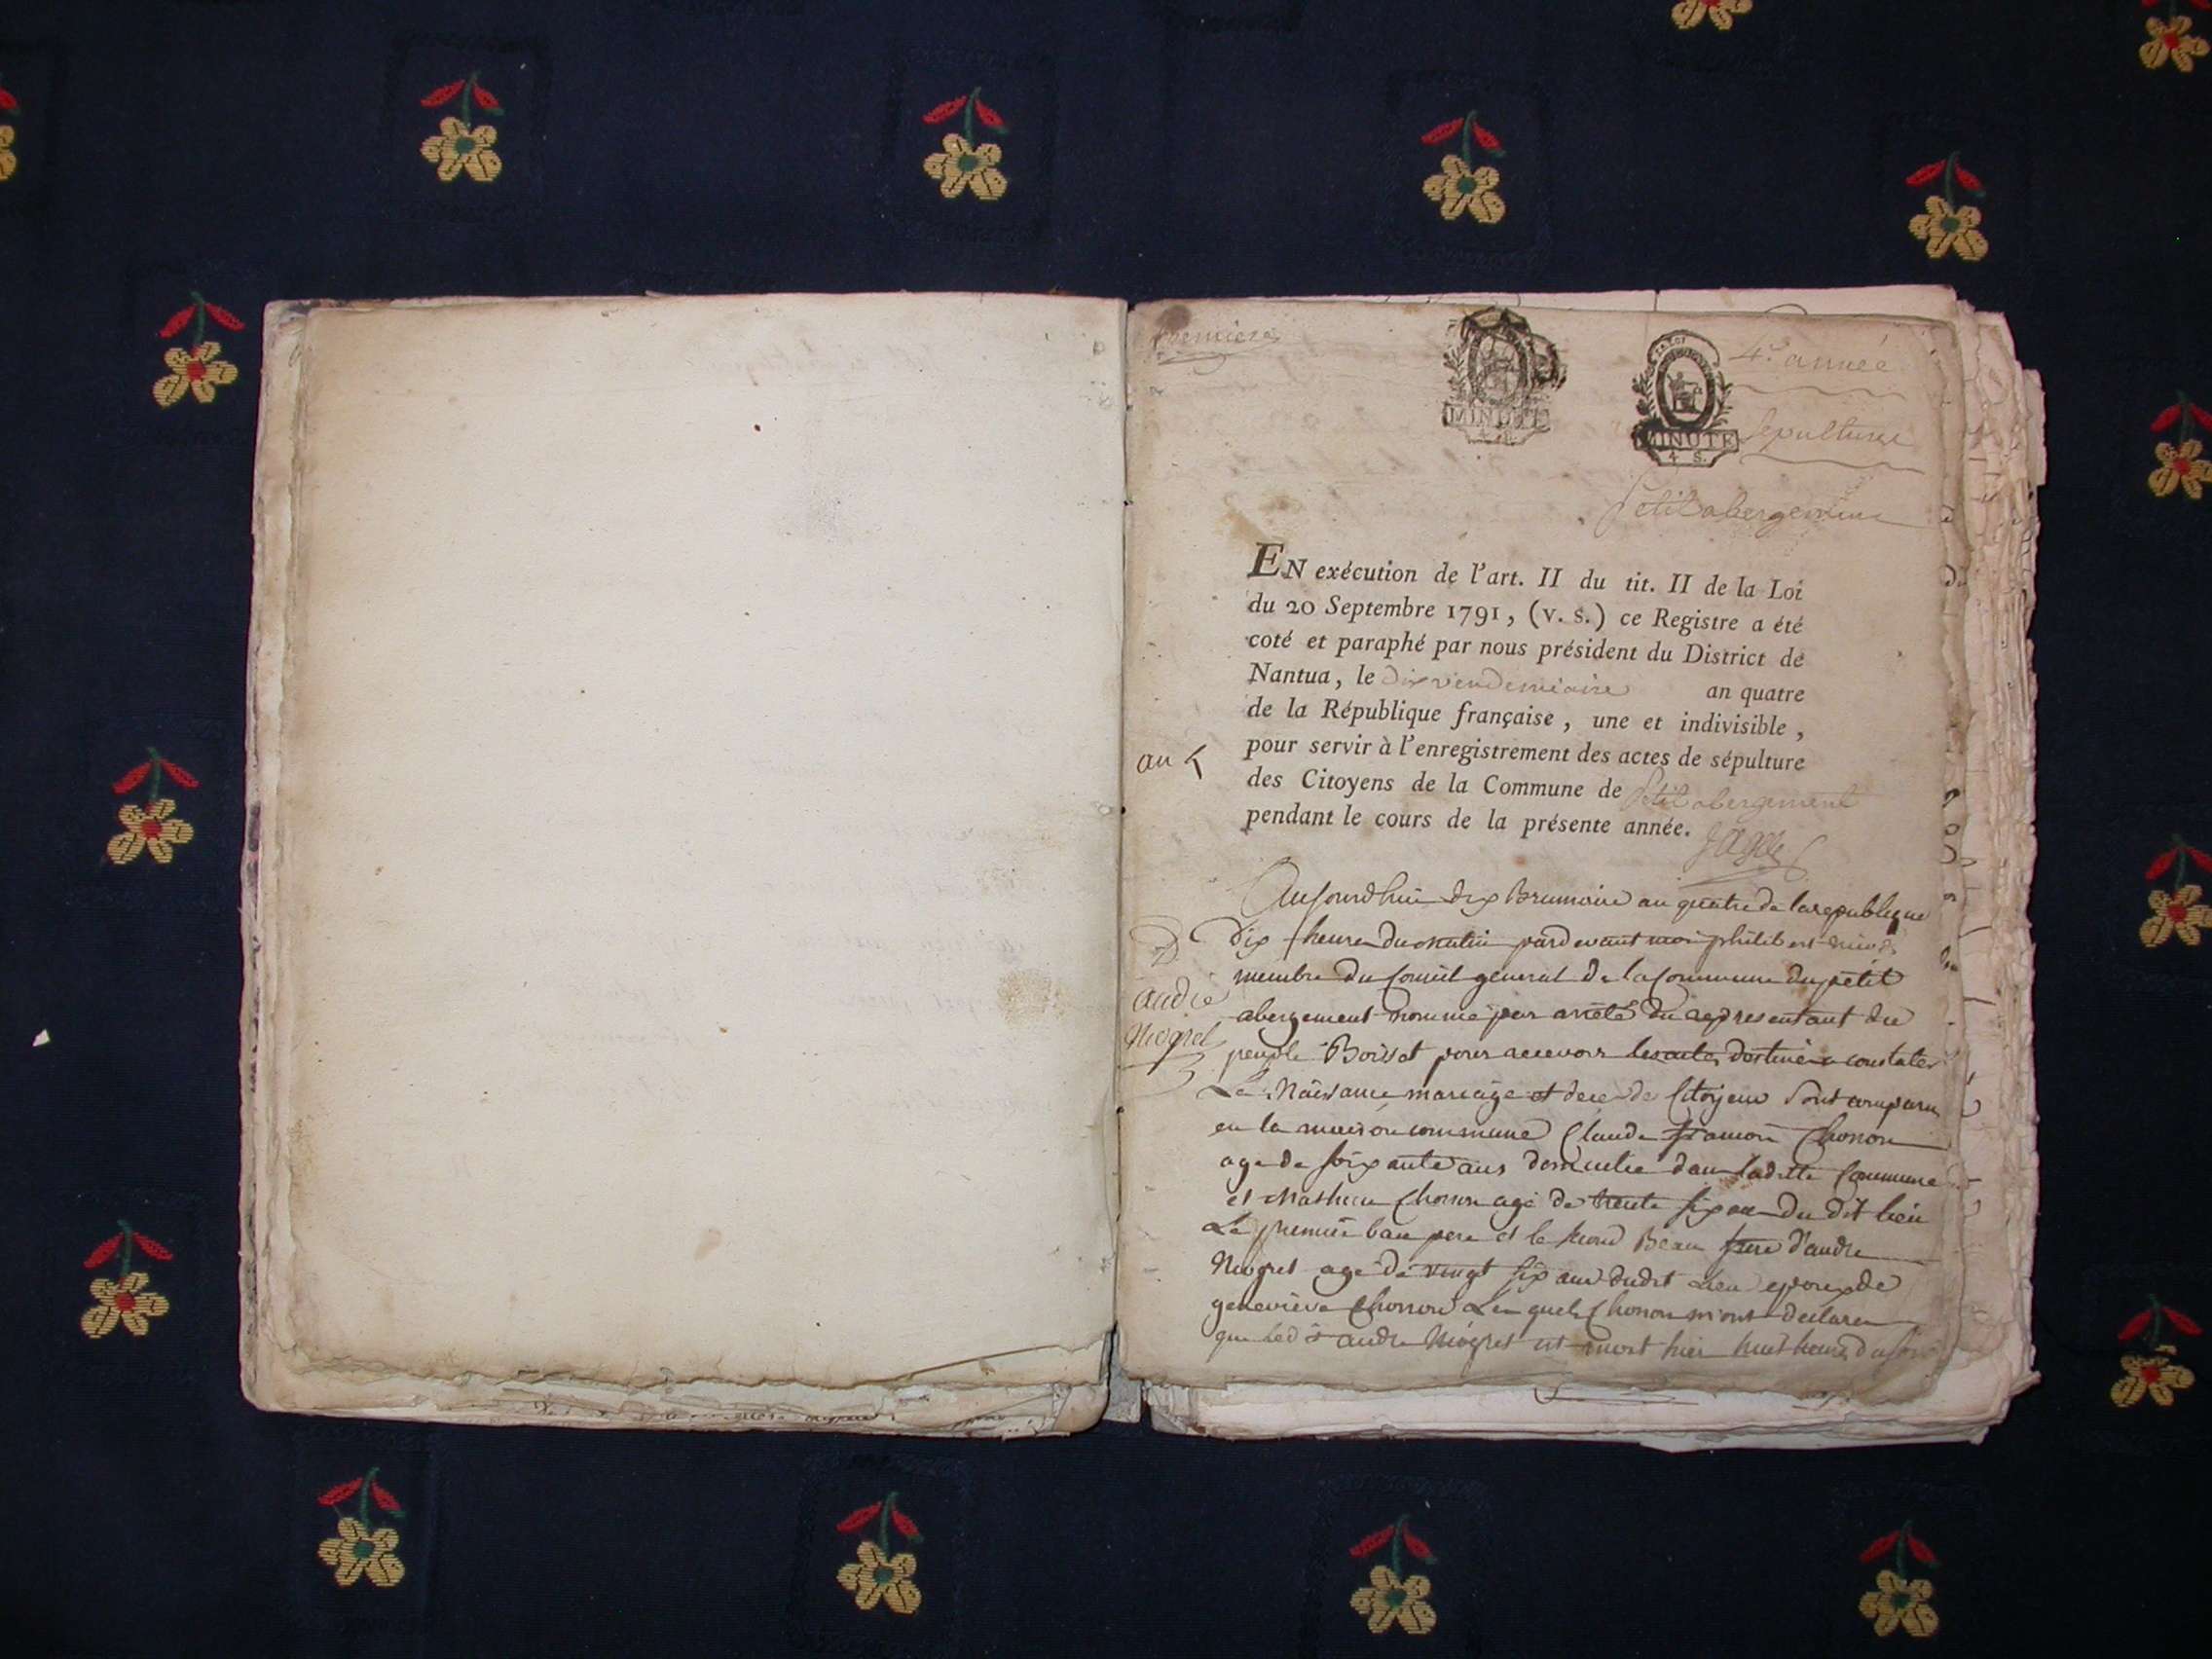 première
4.e année
Sepulture
Petit abergement
LA LOI
MINUTE
4 S.
MINUTE
4 S.
EN exécution de l'art. II du tit. II de la Loi
du 20 Septembre 1791, (v. s.) ce Registre a été
coté et paraphé par nous président du District de
Nantua, le dix vendemiaire an quatre
de la République française, une et indivisible,
pour servir à l'enregistrement des actes de sépulture
des Citoyens de la Commune de Petit abergement
pendant le cours de la présente année.
an 4
Aujourdhui dix Brumaire an quatre de la republique
dix heures du matin pardevant moi philibert
membre du Conseil general de la Commune du petit
abergement nommé par arrêté du representant du
peuple Boisset pour recevoir les actes destiné a constater
La Naissance mariage et deces de Citoyens sont comparu
en la maison commune Claude Chonon
age de soixante ans domicilie dans laditte Commune
et Mathieu Chonon agé de trente six ans du dit lieu
Le premier bau pere et le second Beau frere d'andre
Niogret agé de vingt six ans dudit Lieu epoux de
genevieve Chonon Lesquels Chonon mont declaré
que ledit andre Niogret est mort hier huit heures du soir
D
andré
Niogret